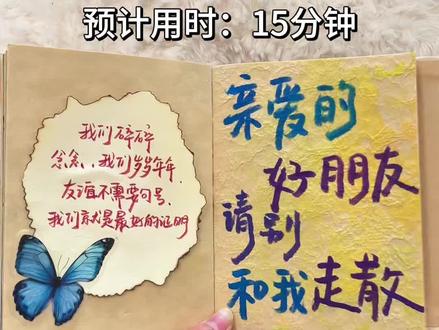 预计用时：15分钟
我们碎碎
念念、我们岁岁年年
友谊不需要句号、
我们就是最好的证明
亲爱的
好朋友
请别
和我走散